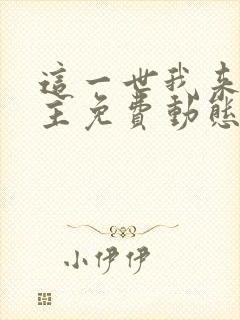 這一世我来
主免費動態
小伊伊